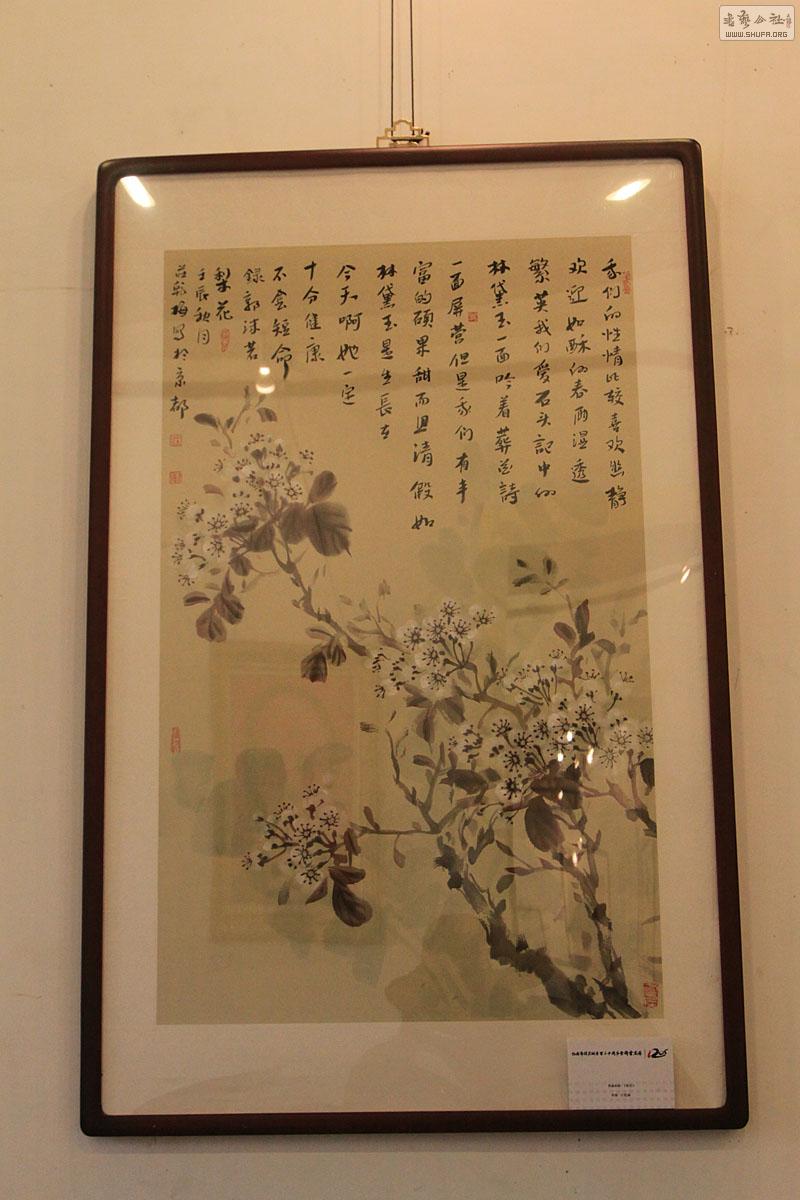 我们的性情比较喜欢幽静
欢迎如酥的春雨湿透
繁英我们爱石头記中的
林黛玉一面吟着葬花詩
一面屏营但是我们有丰
富的碩果甜而且清假如
林黛玉是生長在
今天啊她一定
十分健康
不会短命
錄郭沫若
梨花
壬辰秋月
莊乾梅写於京都
書藝公社
WWW.SHUFA.ORG